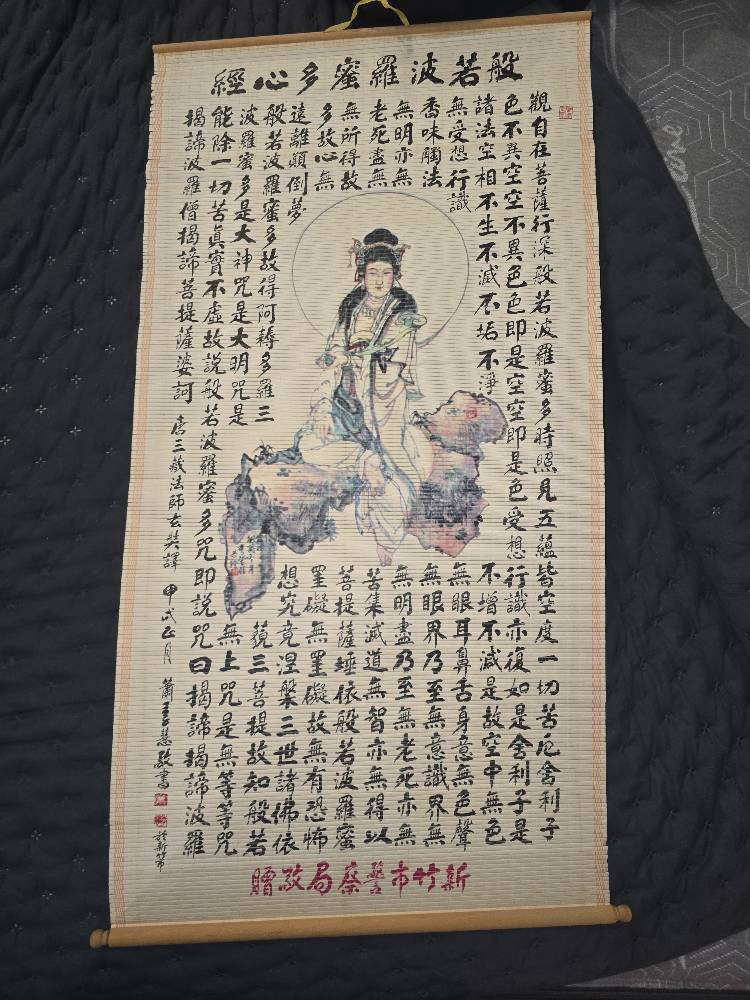 般若波羅蜜多心經
觀自在菩薩行深般若波羅蜜多時照見五蘊皆空度一切苦厄舍利子
色不異空空不異色色即是空空即是色受想行識亦復如是舍利子是
諸法空相不生不滅不垢不淨不增不減是故空中無色
無受想行識無眼耳鼻舌身意無色聲
香味觸法無眼界乃至無意識界無
無明亦無無明盡乃至無老死亦無
老死盡無苦集滅道無智亦無得以
無所得故菩提薩埵依般若波羅蜜
多故心無罣礙無罣礙故無有恐怖
遠離顛倒夢想究竟涅槃三世諸佛依
般若波羅蜜多故得阿耨多羅三藐三菩提故知般若
波羅蜜多是大神咒是大明咒是無上咒是無等等咒
能除一切苦真實不虛故說般若波羅蜜多咒即說咒曰揭諦揭諦波羅
揭諦波羅僧揭諦菩提薩婆訶
唐三藏法師玄奘譯 甲戌正月 蕭慧敬書 於新竹
新竹市警察局敬贈